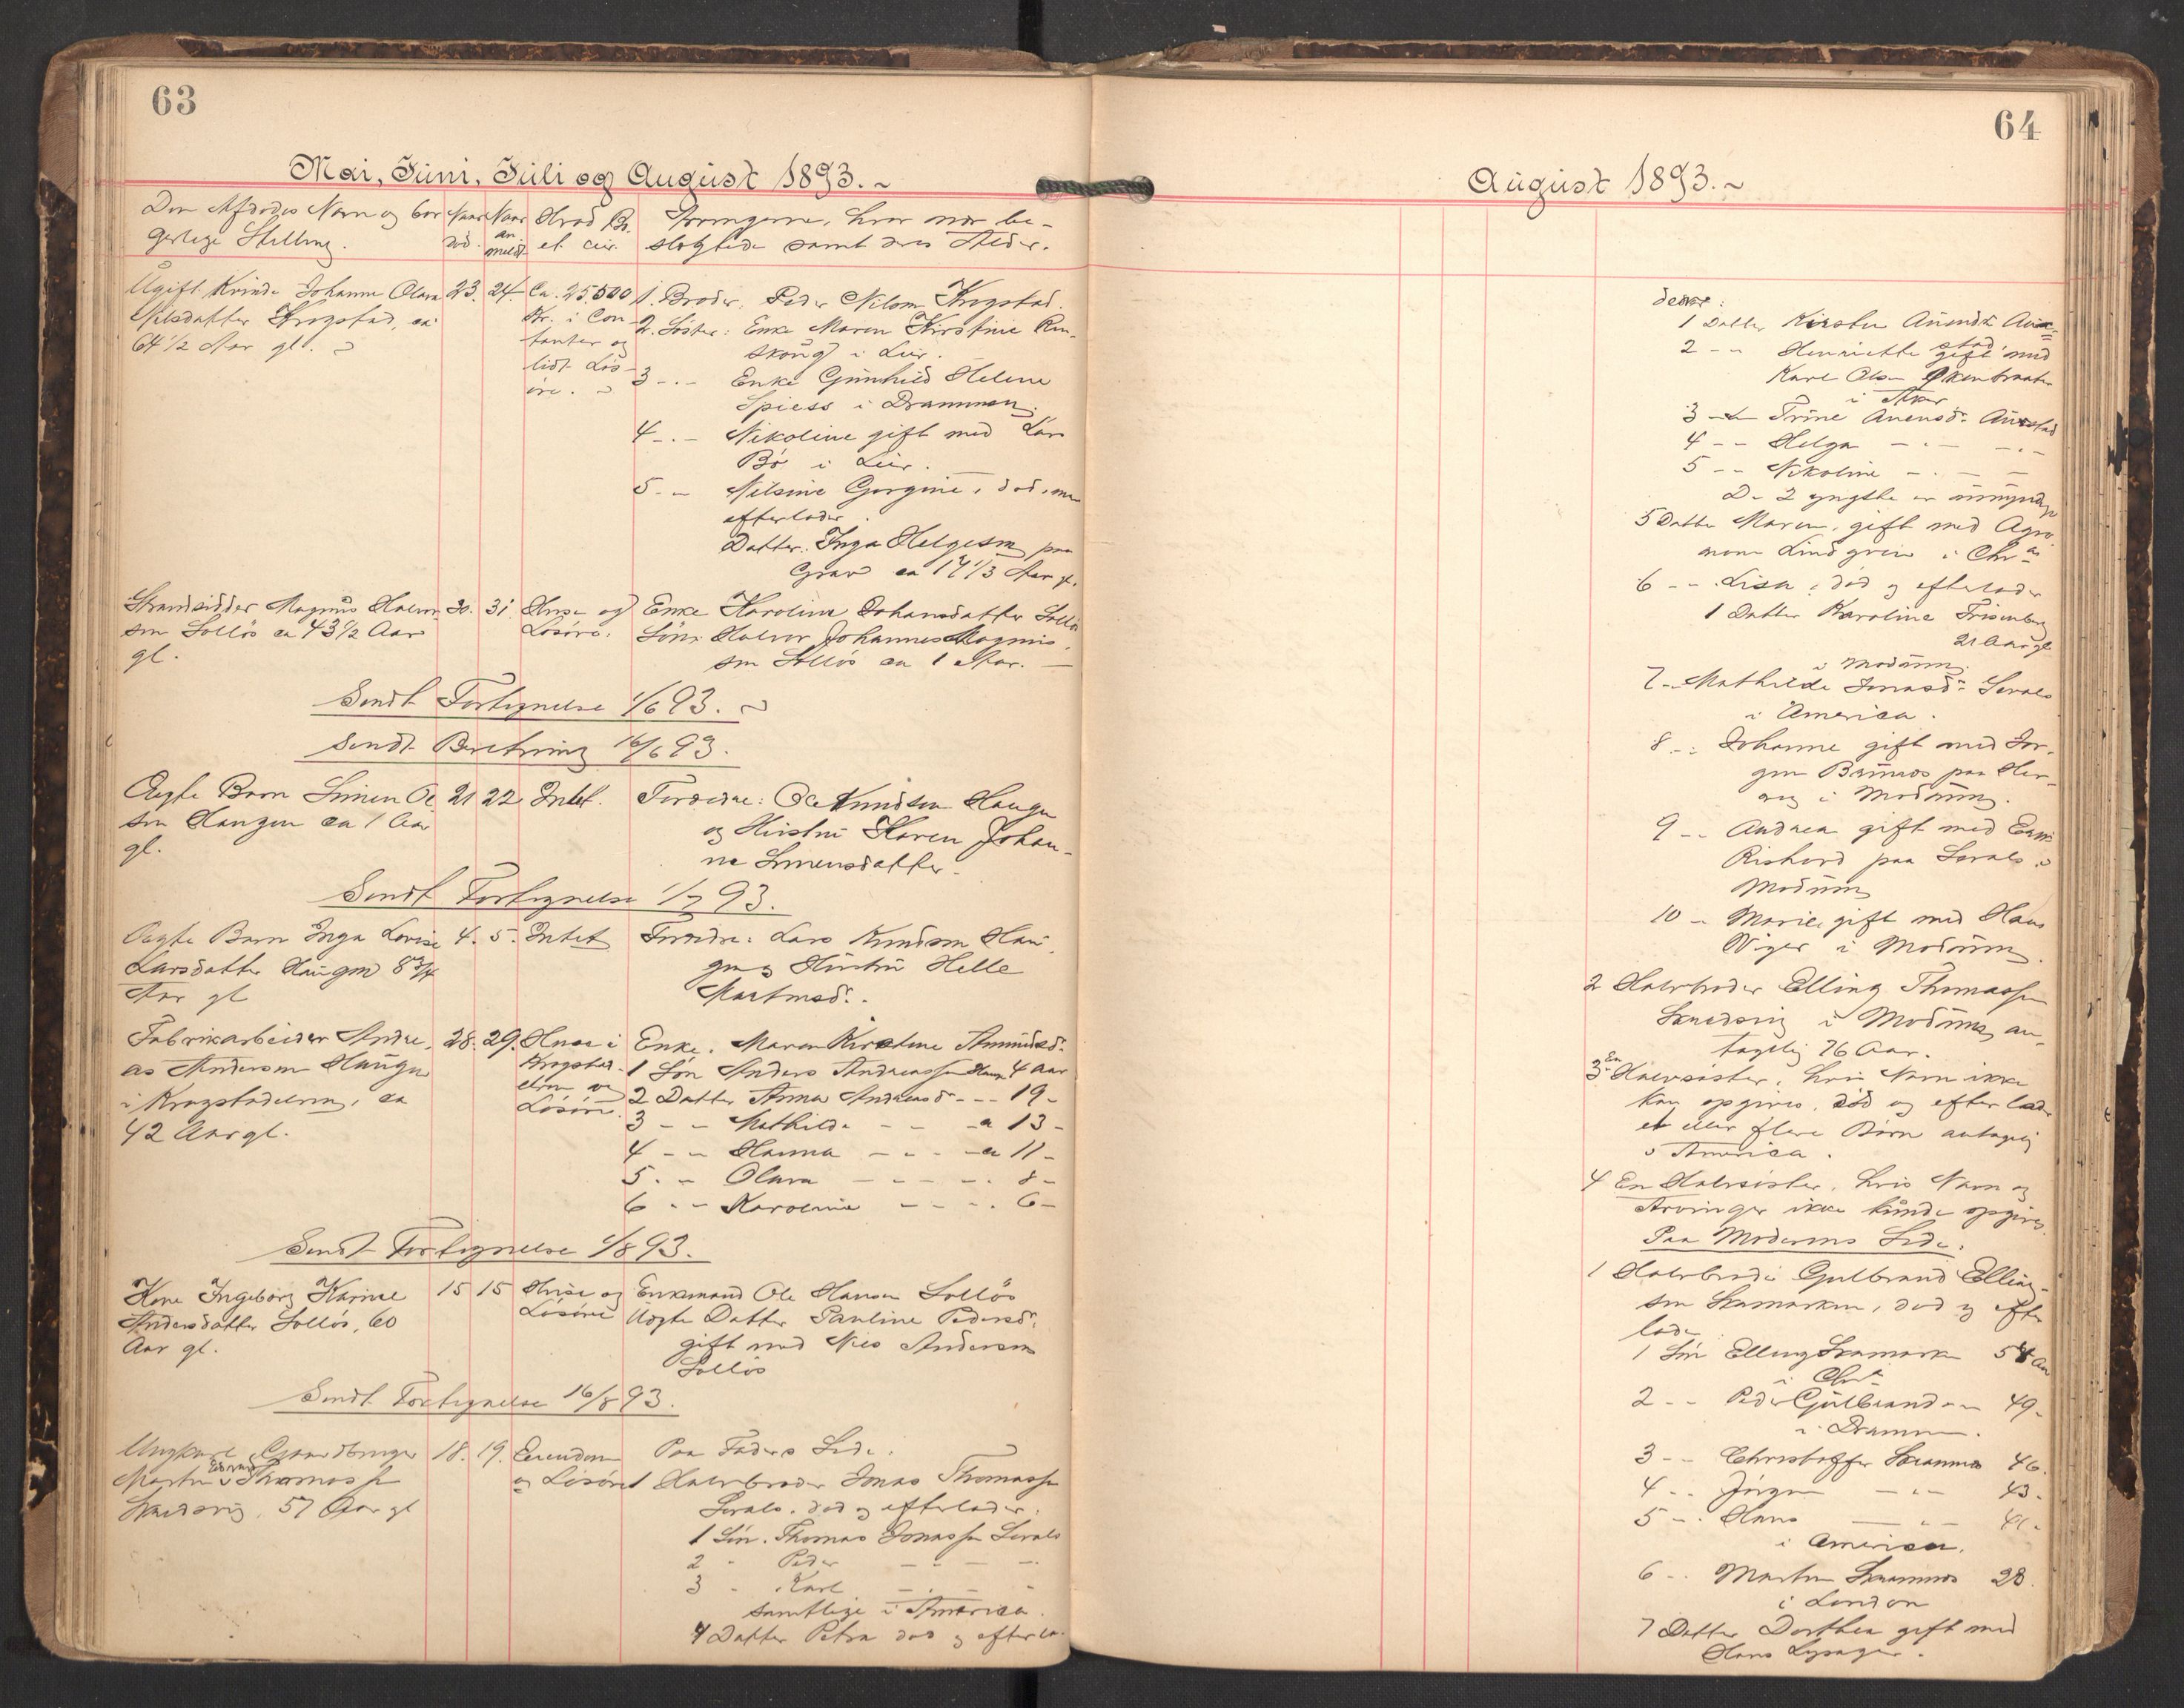 63
Mai, Juni, Juli og August 1893.
Den Afdødes Navn og bor
gerlige Stilling.
Naar
død.
Naar
an
meldt
Hvad Bo
et eier.
Arvingerne, hvor nær be-
slægtede samt deres Alder.
Ugift Kvinde Johanne Olava
Nilsdatter Krogstad, ca
64 1/2 Aar gl.
23.
24.
Ca. 25,500
Kr. i Con
tanter og
lidt Løs-
øre.
1. Broder, Peder Nilsen Krogstad.
2. Søster: Enke Maren Kirstine
i Lier.
3 - . - Enke Gunhild Helene
Spiess i Drammen.
4 - . - Nikoline gift med Lars
Bø i Lier.
5 - - Nilsine Gurgine, død, men
efterlader
Datter. Inga Helgesen paa
ca 17 1/3 Aar gl.
Strandsidder Magnus Halvor
sen Solløs ca 43 1/2 Aar
gl.
30.
31.
Huse og
Løsøre.
Enke Karoline Johansdatter Solløs
Søn: Halvor Johannes Magnus
sen Solløs ca 1 Aar.
Sendt Fortegnelse 1/6 93.
Sendt Beretning 16/6 93.
Ægte Barn Simen Ol
sen Haugen ca 1 Aar
gl.
21
22
Intet.
Forældre: Ole Knudsen Haugen
og Hustru Karen Johan-
ne Simensdatter.
Sendt Fortegnelse 1/7 93.
Ægte Barn Inga Lovise
Larsdatter Haugen 8 3/4
Aar gl
4.
5.
Intet
Forældre: Lars Knudsen Hau
gen og Hustru Helle
Martinsd.
Fabrikarbeider Andre
as Andersen Haugen
i Krogstadelven, ca
42 Aar gl.
28.
29.
Huse i
Krogstad-
elven og
Løsøre.
Enke. Maren Kirstine Amundsd.
1 Søn Anders Andreassen Haugen 4 Aar
2 Datter Anna Andreasd - - - 19 -
3 - - Mathilde - - - 13 -
4 - - Hanna - - - 11 -
5. - Olava - - - 8 -
6 - - Karoline - - - 6 -
Sendt Fortegnelse 1/8 93.
Kone Ingeborg Karine
Andersdatter Solløs, 60
Aar gl.
15
15
Huse og
Løsøre
Enkemand Ole Hansen Solløs
Uægte Datter Pauline Pedersd.
gift med Nils Andersen
Solløs
Sendt Fortegnelse 16/8 93.
Ungkarl, Gaardbruger
Martin Edvard Thomassen
Snedsvig, 57 Aar gl
18.
19.
Eiendom
og Løsøre
Paa Faders Side.
1 Halvbroder Jonas Thomassen
død og efterlader.
1 Søn. Thomas Jonassen
2 - Peder - - -
3 - Karl - - -
samtlige i America.
4 Datter Petra død og efterla-
64
August 1893.
der:
1 Datter Kirsten
2 - - Henriette gift med
Karl Olsen
i Aker
3 - - Trine
4 - - Helga - - -
5 - - Nikoline - - -
De 2 yngste er umyndige
5 Datter Maren, gift med Agro
nom Lindgren i Chr.a
6 - - Lisa, død og efterlader
1 Datter Karoline
21 Aar gl
i Modum.
7 - Mathilde Jonasd.
i America.
8 - - Johanne gift med Jør-
gen paa
i Modum.
9 - - Andrea gift med
paa
Modum
10 - Marie, gift med Hans
i Modum.
2 Halvbroder Elling Thomassen
Snedsvig i Modum, an-
tagelig 76 Aar.
3. En Halvsøster, hvis Navn ikke
kan opgives, død og efterlader
et eller flere Børn antagelig
i America.
4 En Halvsøster, hvis Navn og
Arvinger ikke kunde opgives.
Paa Moderens Side.
1 Halvbroder Gulbrand Elling-
sen død og efter
lader
1 Søn Elling
i Chr.a
2 - - Peder Gulbrandsen 49 -
i Drammen.
3 - - Christoffer 46.
4 - - Jørgen - - - 43 -
5 - - Hans - - 41 -
i America.
6 - - Martin 28.
i London
7 Datter Dorthea gift med
Hans Lysager.